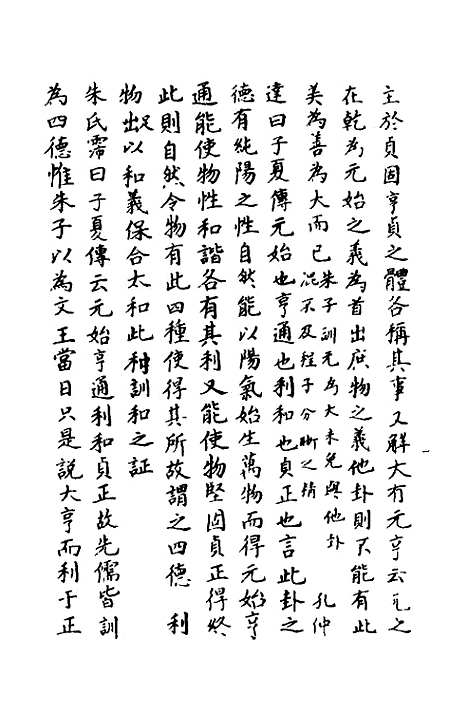 主於貞固亨貞之體各稱其事又解大有元亨云凡之
在乾為元始之義為首出庶物之義他卦則不能有此
美為善為大而已朱子訓元為大未免與他卦混不及程子分晰之精　孔仲
達曰子夏傳元始也亨通也利和也貞正也言此卦之
德有純陽之性自然能以陽氣始生萬物而得元始亨
通能使物性和諧各有其利又能使物堅固貞正得終
此則自然令物有此四種使得其所故謂之四德　利
物足以和義保合太和此利訓和之証
朱氏霈曰子夏傳云元始亨通利和貞正故先儒皆訓
為四德惟朱子以為文王當日只是説大亨而利于正